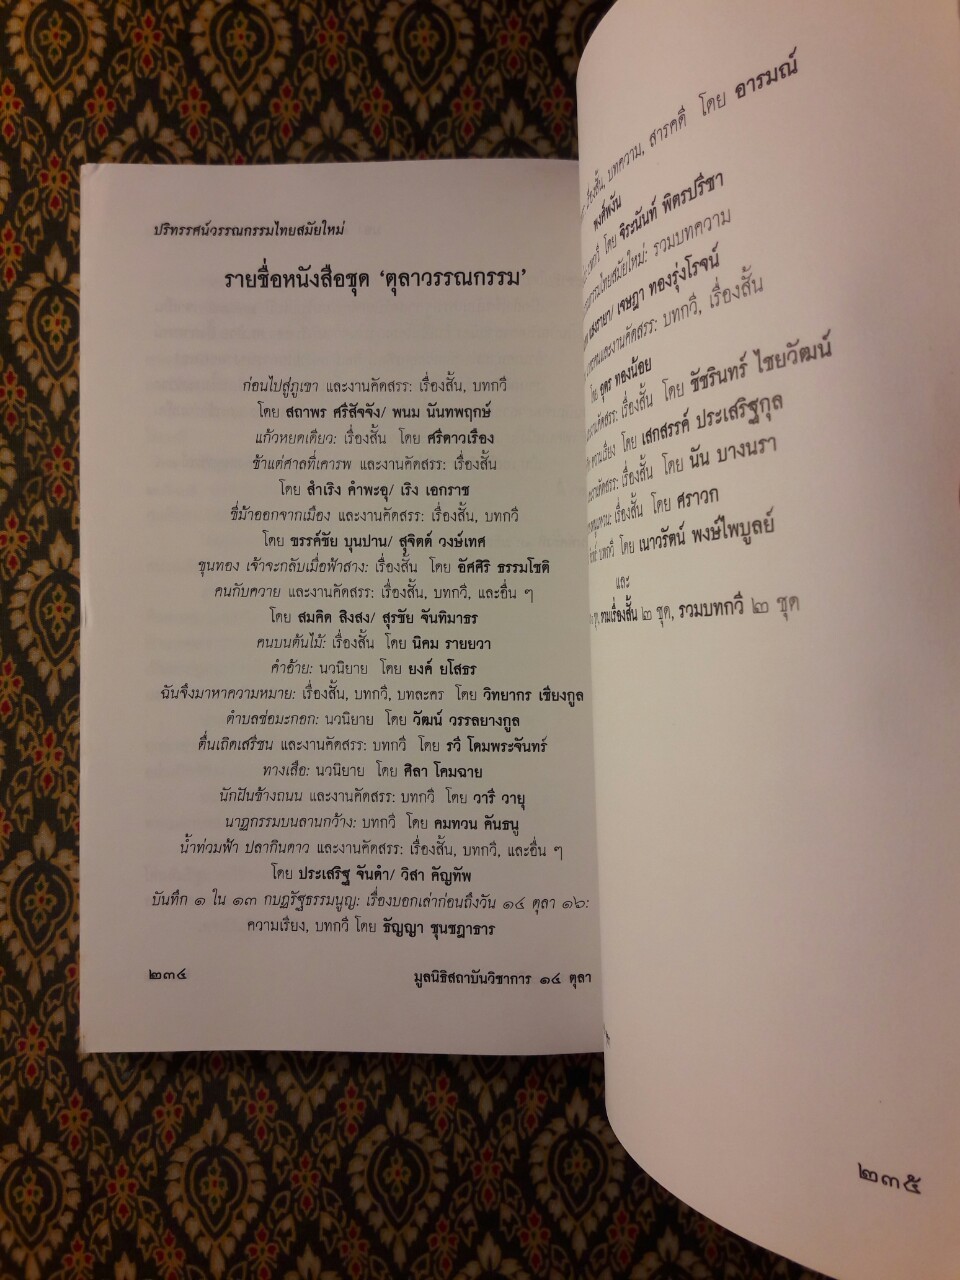 ปริทรรศน์วรรณกรรมไทยสมัยใหม่
รายชื่อหนังสือชุด ‘ตุลาวรรณกรรม’
ก่อนไปสู่ภูเขา และงานคัดสรร: เรื่องสั้น, บทกวี
โดย สถาพร ศรีสัจจัง/ พนม นันทพฤกษ์
แก้วหยดเดียว: เรื่องสั้น โดย ศรีดาวเรือง
ข้าแต่ศาลที่เคารพ และงานคัดสรร: เรื่องสั้น
โดย สำเริง คำพะอุ/ เริง เอกราช
ขี่ม้าออกจากเมือง และงานคัดสรร: เรื่องสั้น, บทกวี
โดย ขรรค์ชัย บุนปาน/ สุจิตต์ วงษ์เทศ
ขุนทอง เจ้าจะกลับเมื่อฟ้าสาง: เรื่องสั้น โดย อัศศิริ ธรรมโชติ
คนกับควาย และงานคัดสรร: เรื่องสั้น, บทกวี, และอื่น ๆ
โดย สมคิด สิงสง/ สุรชัย จันทิมาธร
คนบนต้นไม้: เรื่องสั้น โดย นิคม รายยวา
คำอ้าย: นวนิยาย โดย ยงค์ ยโสธร
ฉันจึงมาหาความหมาย: เรื่องสั้น, บทกวี, บทละคร โดย วิทยากร เชียงกูล
ตำบลช่อมะกอก: นวนิยาย โดย วัฒน์ วรรลยางกูล
ตื่นเถิดเสรีชน และงานคัดสรร: บทกวี โดย รวี โดมพระจันทร์
ทางเสือ: นวนิยาย โดย ศิลา โคมฉาย
นักฝันข้างถนน และงานคัดสรร: บทกวี โดย วารี วายุ
นาฏกรรมบนลานกว้าง: บทกวี โดย คมทวน คันธนู
น้ำท่วมฟ้า ปลากินดาว และงานคัดสรร: เรื่องสั้น, บทกวี, และอื่น ๆ
โดย ประเสริฐ จันดำ/ วิสา คัญทัพ
บันทึก ๑ ใน ๑๓ กบฏรัฐธรรมนูญ: เรื่องบอกเล่าก่อนถึงวัน ๑๔ ตุลา ๑๖:
ความเรียง, บทกวี โดย ธัญญา ชุนชฎาธาร
๒๓๔
มูลนิธิสถาบันวิชาการ ๑๔ ตุลา
บทความ, สารคดี โดย อารมณ์
พงศ์พงัน
โดย จิระนันท์ พิตรปรีชา
รวมบทความ
เจษฎา ทองรุ่งโรจน์
บทกวี, เรื่องสั้น
โดย อุดร ทองน้อย
เรื่องสั้น โดย ชัชรินทร์ ไชยวัฒน์
ความเรียง โดย เสกสรรค์ ประเสริฐกุล
เรื่องสั้น โดย นัน บางนรา
เรื่องสั้น โดย ศราวก
บทกวี โดย เนาวรัตน์ พงษ์ไพบูลย์
และ
รวมเรื่องสั้น ๒ ชุด, รวมบทกวี ๒ ชุด
๒๓๕